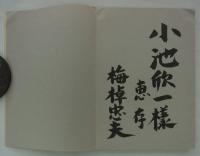 小池欣一様
恵存
梅棹忠夫